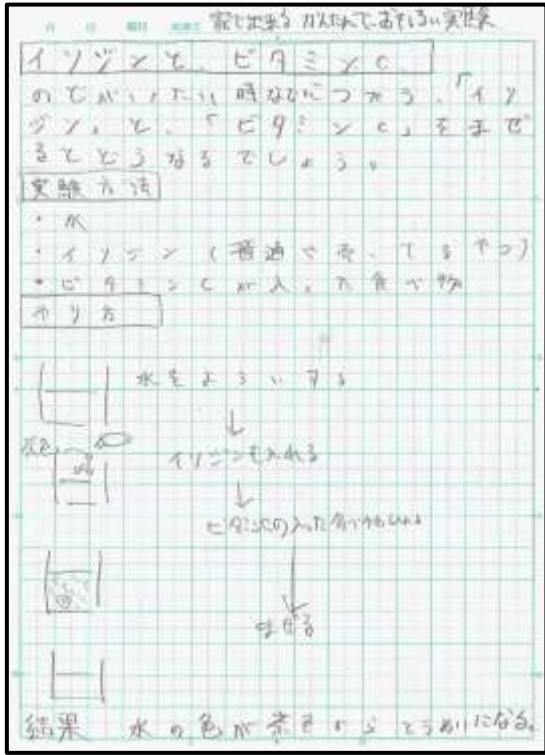 家で出来る かんたんでおもしろい実験
イソジンと、ビタミンC
のどがいたい時などにつかう、「イソ
ジン」と、「ビタミンC」をまぜ
るとどうなるでしょう。
実験方法
・水
・イソジン(普通で売ってるやつ)
・ビタミンCが入った食べ物
やり方
水をよういする
↓
イソジンを入れる
↓
ビタミンCの入った食べものをいれる
↓
まぜる
結果 水の色が茶色からとうめいになる。